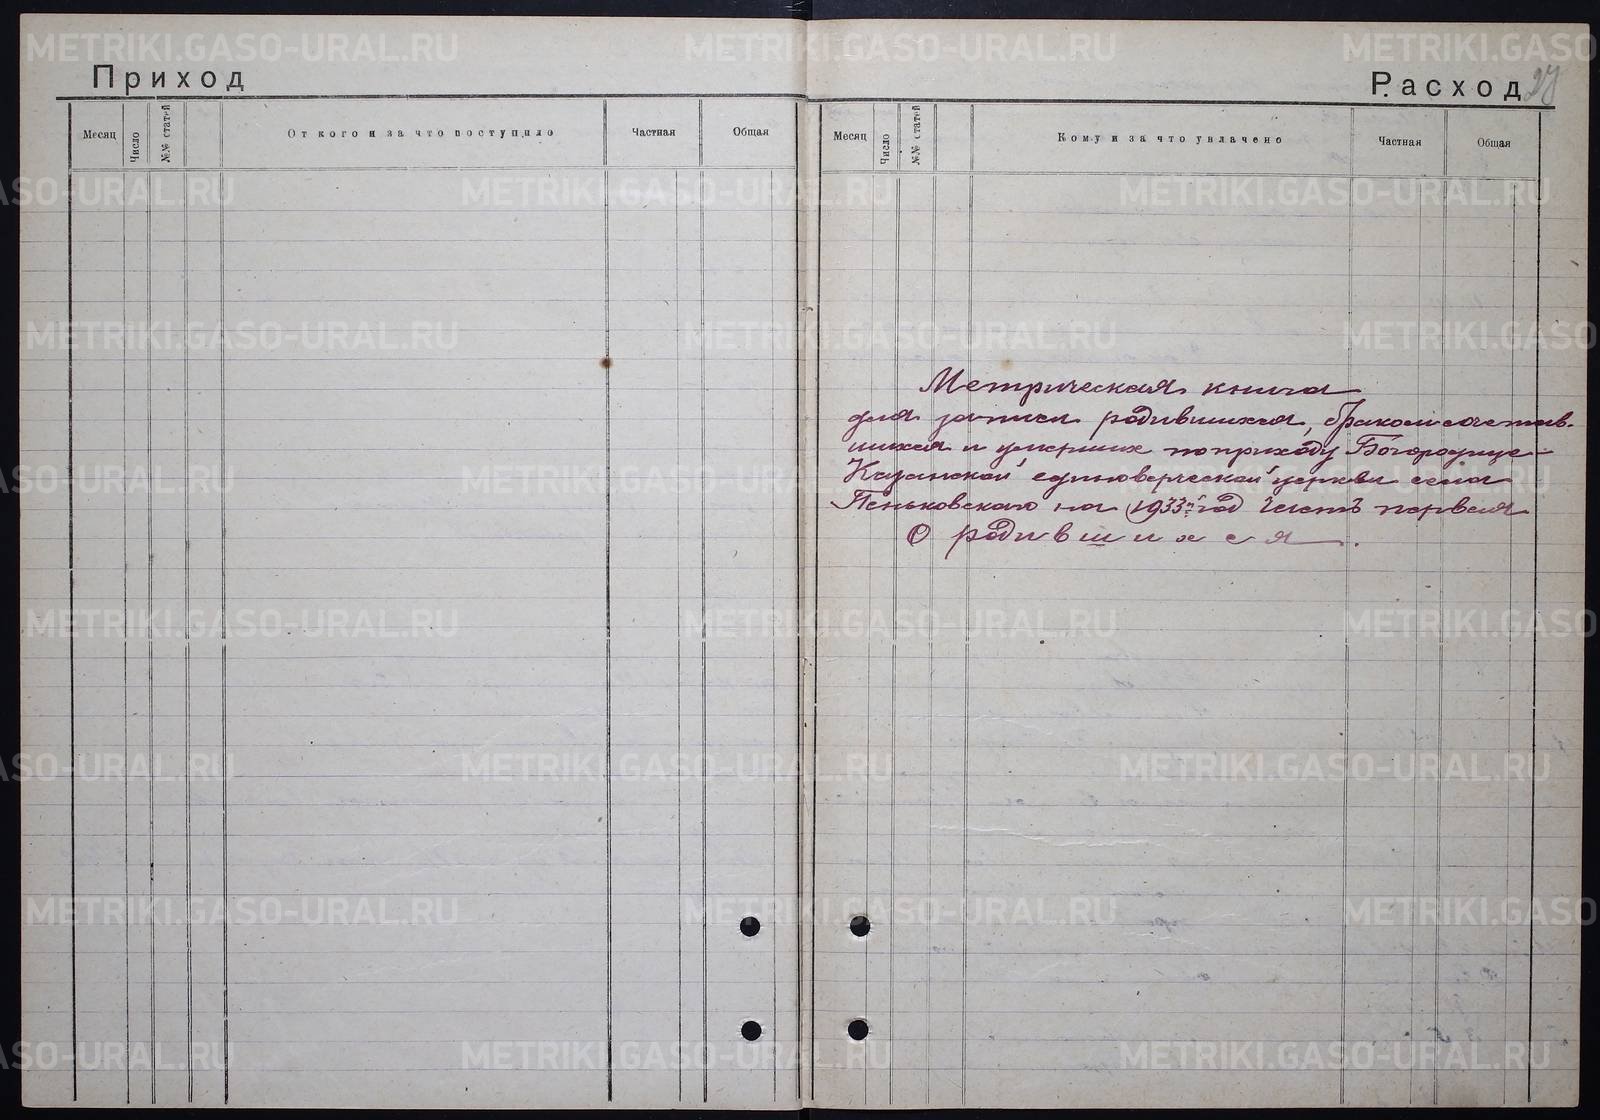 Приход
Месяц
Число
№№ статей
От кого и за что поступило
Частная
Общая
Расход
27
Месяц
Число
№№ статей
Кому и за что уплачено
Частная
Общая
Метрическая книга
для записи родившихся, бракомсочетав-
шихся и умерших по приходу Богородице-
Казанской единоверческой церкви села
Пеньковского на 1933й год Часть первая
О родившихся.
METRIKI.GASO-URAL.RU